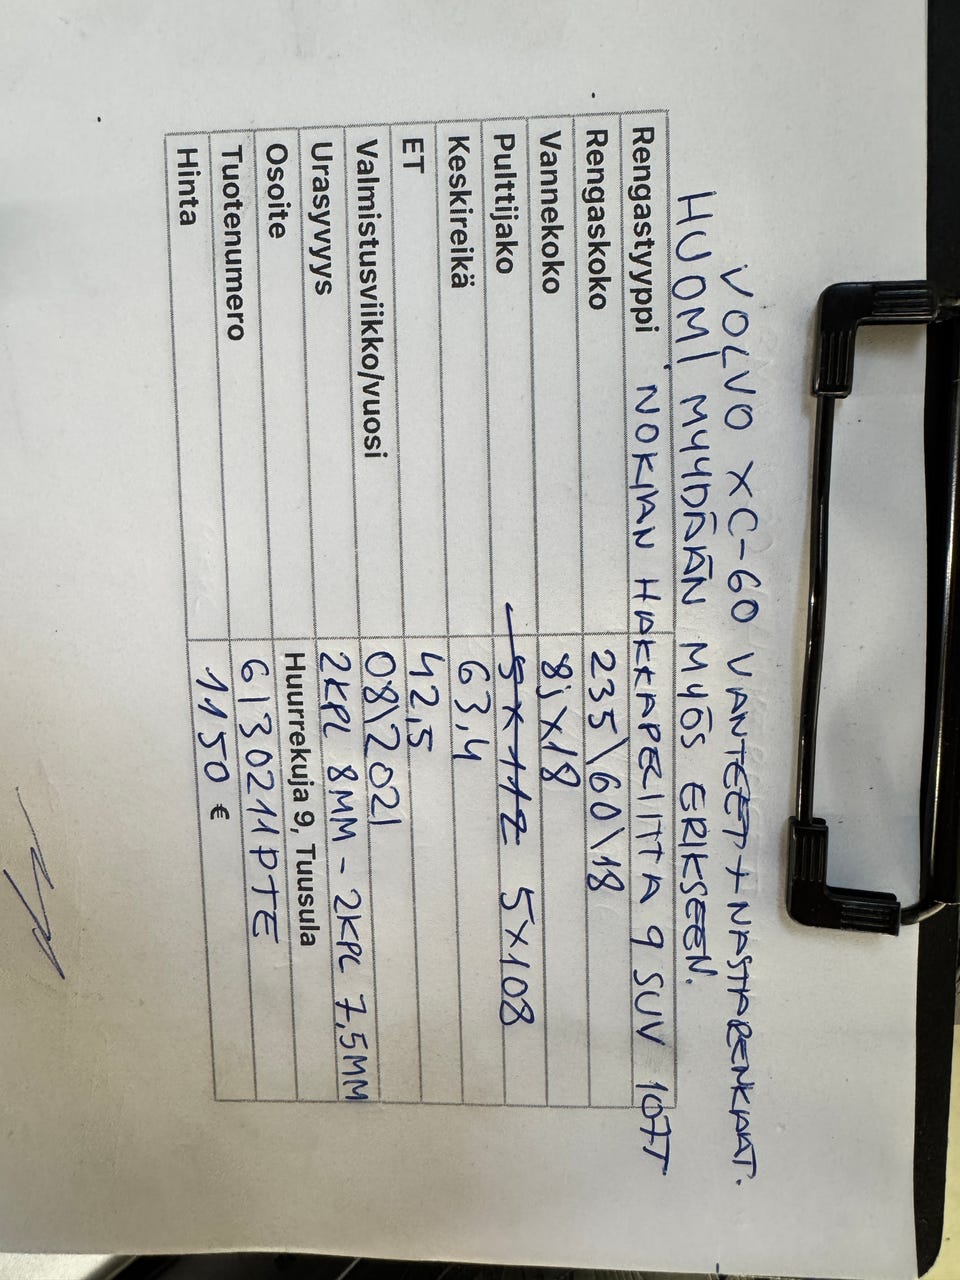 VOLVO XC-60 VANTEET + NASTARENKAAT.
HUOM! MYYDÄÄN MYÖS ERIKSEEN.
Rengastyyppi NOKIAN HAKKAPELITTA 9 SUV 107T
Rengaskoko 235\60\18
Vannekoko 8j x18
Pulttijako 5x112 5x108
Keskireikä 63,4
ET 42,5
Valmistusviikko/vuosi 08\2021
Urasyvyys 2KPL 8MM - 2KPL 7,5MM
Osoite Huurrekuja 9, Tuusula
Tuotenumero 6130211PTE
Hinta 1150 €